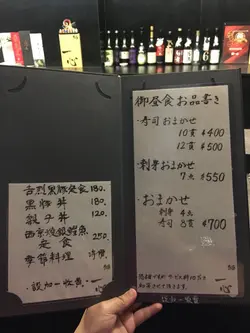 吉列黑豚定食 180.
黑豚丼 180.
親子丼 120.
西京燒銀鱈魚
定食 250
季節料理 時價
設加一收費
一心
御昼食お品書き
・寿司おまかせ
10貫 ¥400
12貫 ¥500
・刺身おまかせ
7点 ¥550
・おまかせ
刺身 4点
寿司 8貫 ¥700
設加一收費
一心